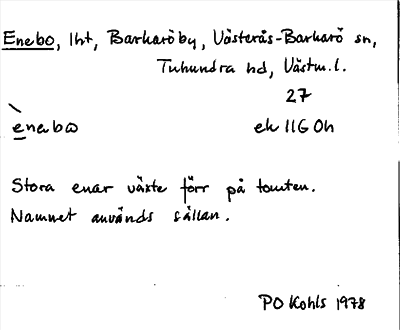 Enebo, lht, Barkaröby, Västerås-Barkarö sn,
Tuhundra hd, Västm. l.
27
enebω ek 11G 0h
Stora enar växte förr på tomten.
Namnet används sällan.
PO Kohls 1978